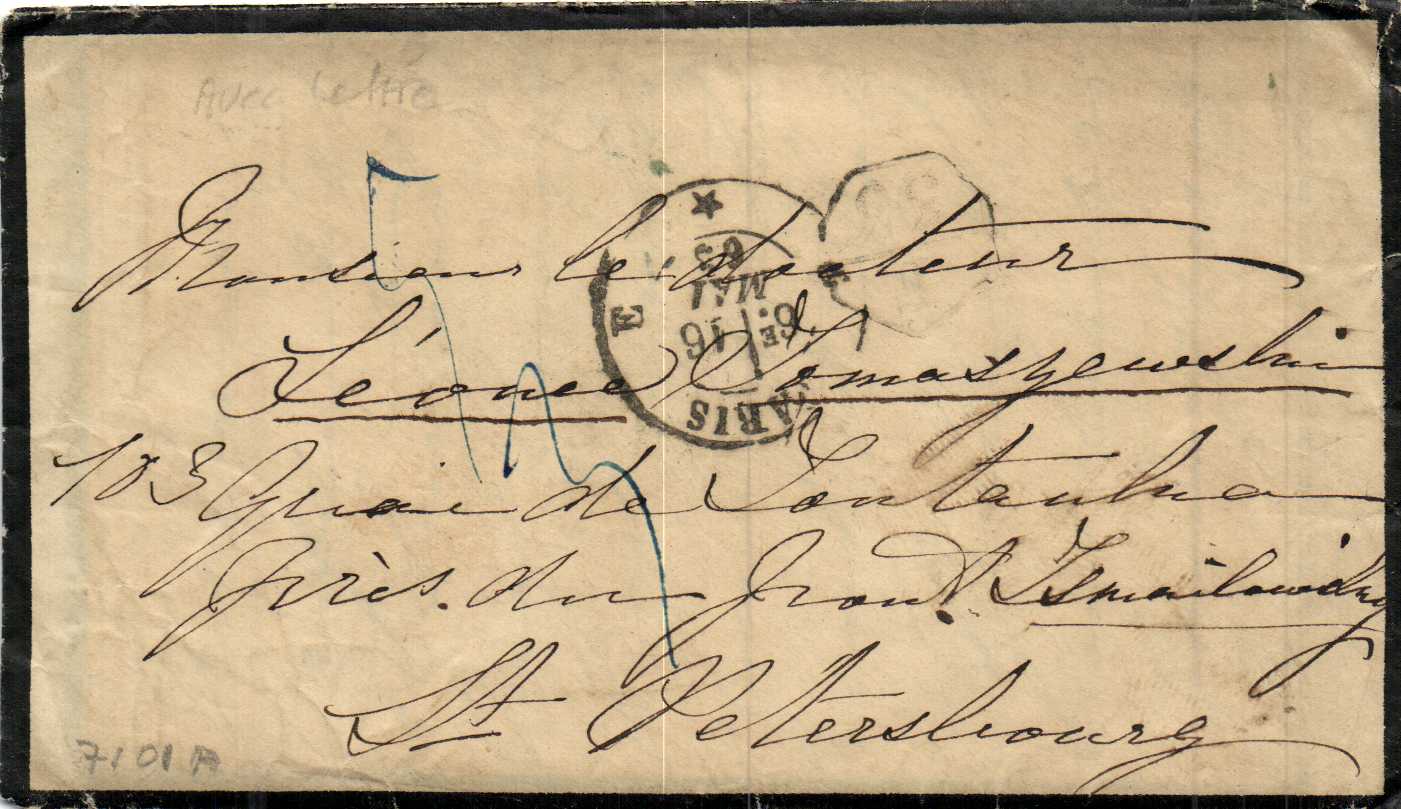 Avec lettre
Monsieur le docteur
Léonce Tomaszewski
183 Quai de Fontanka
près du pont Ismailowsky
St Petersbourg
PARIS
E
6E
16
MAI
63
7101A